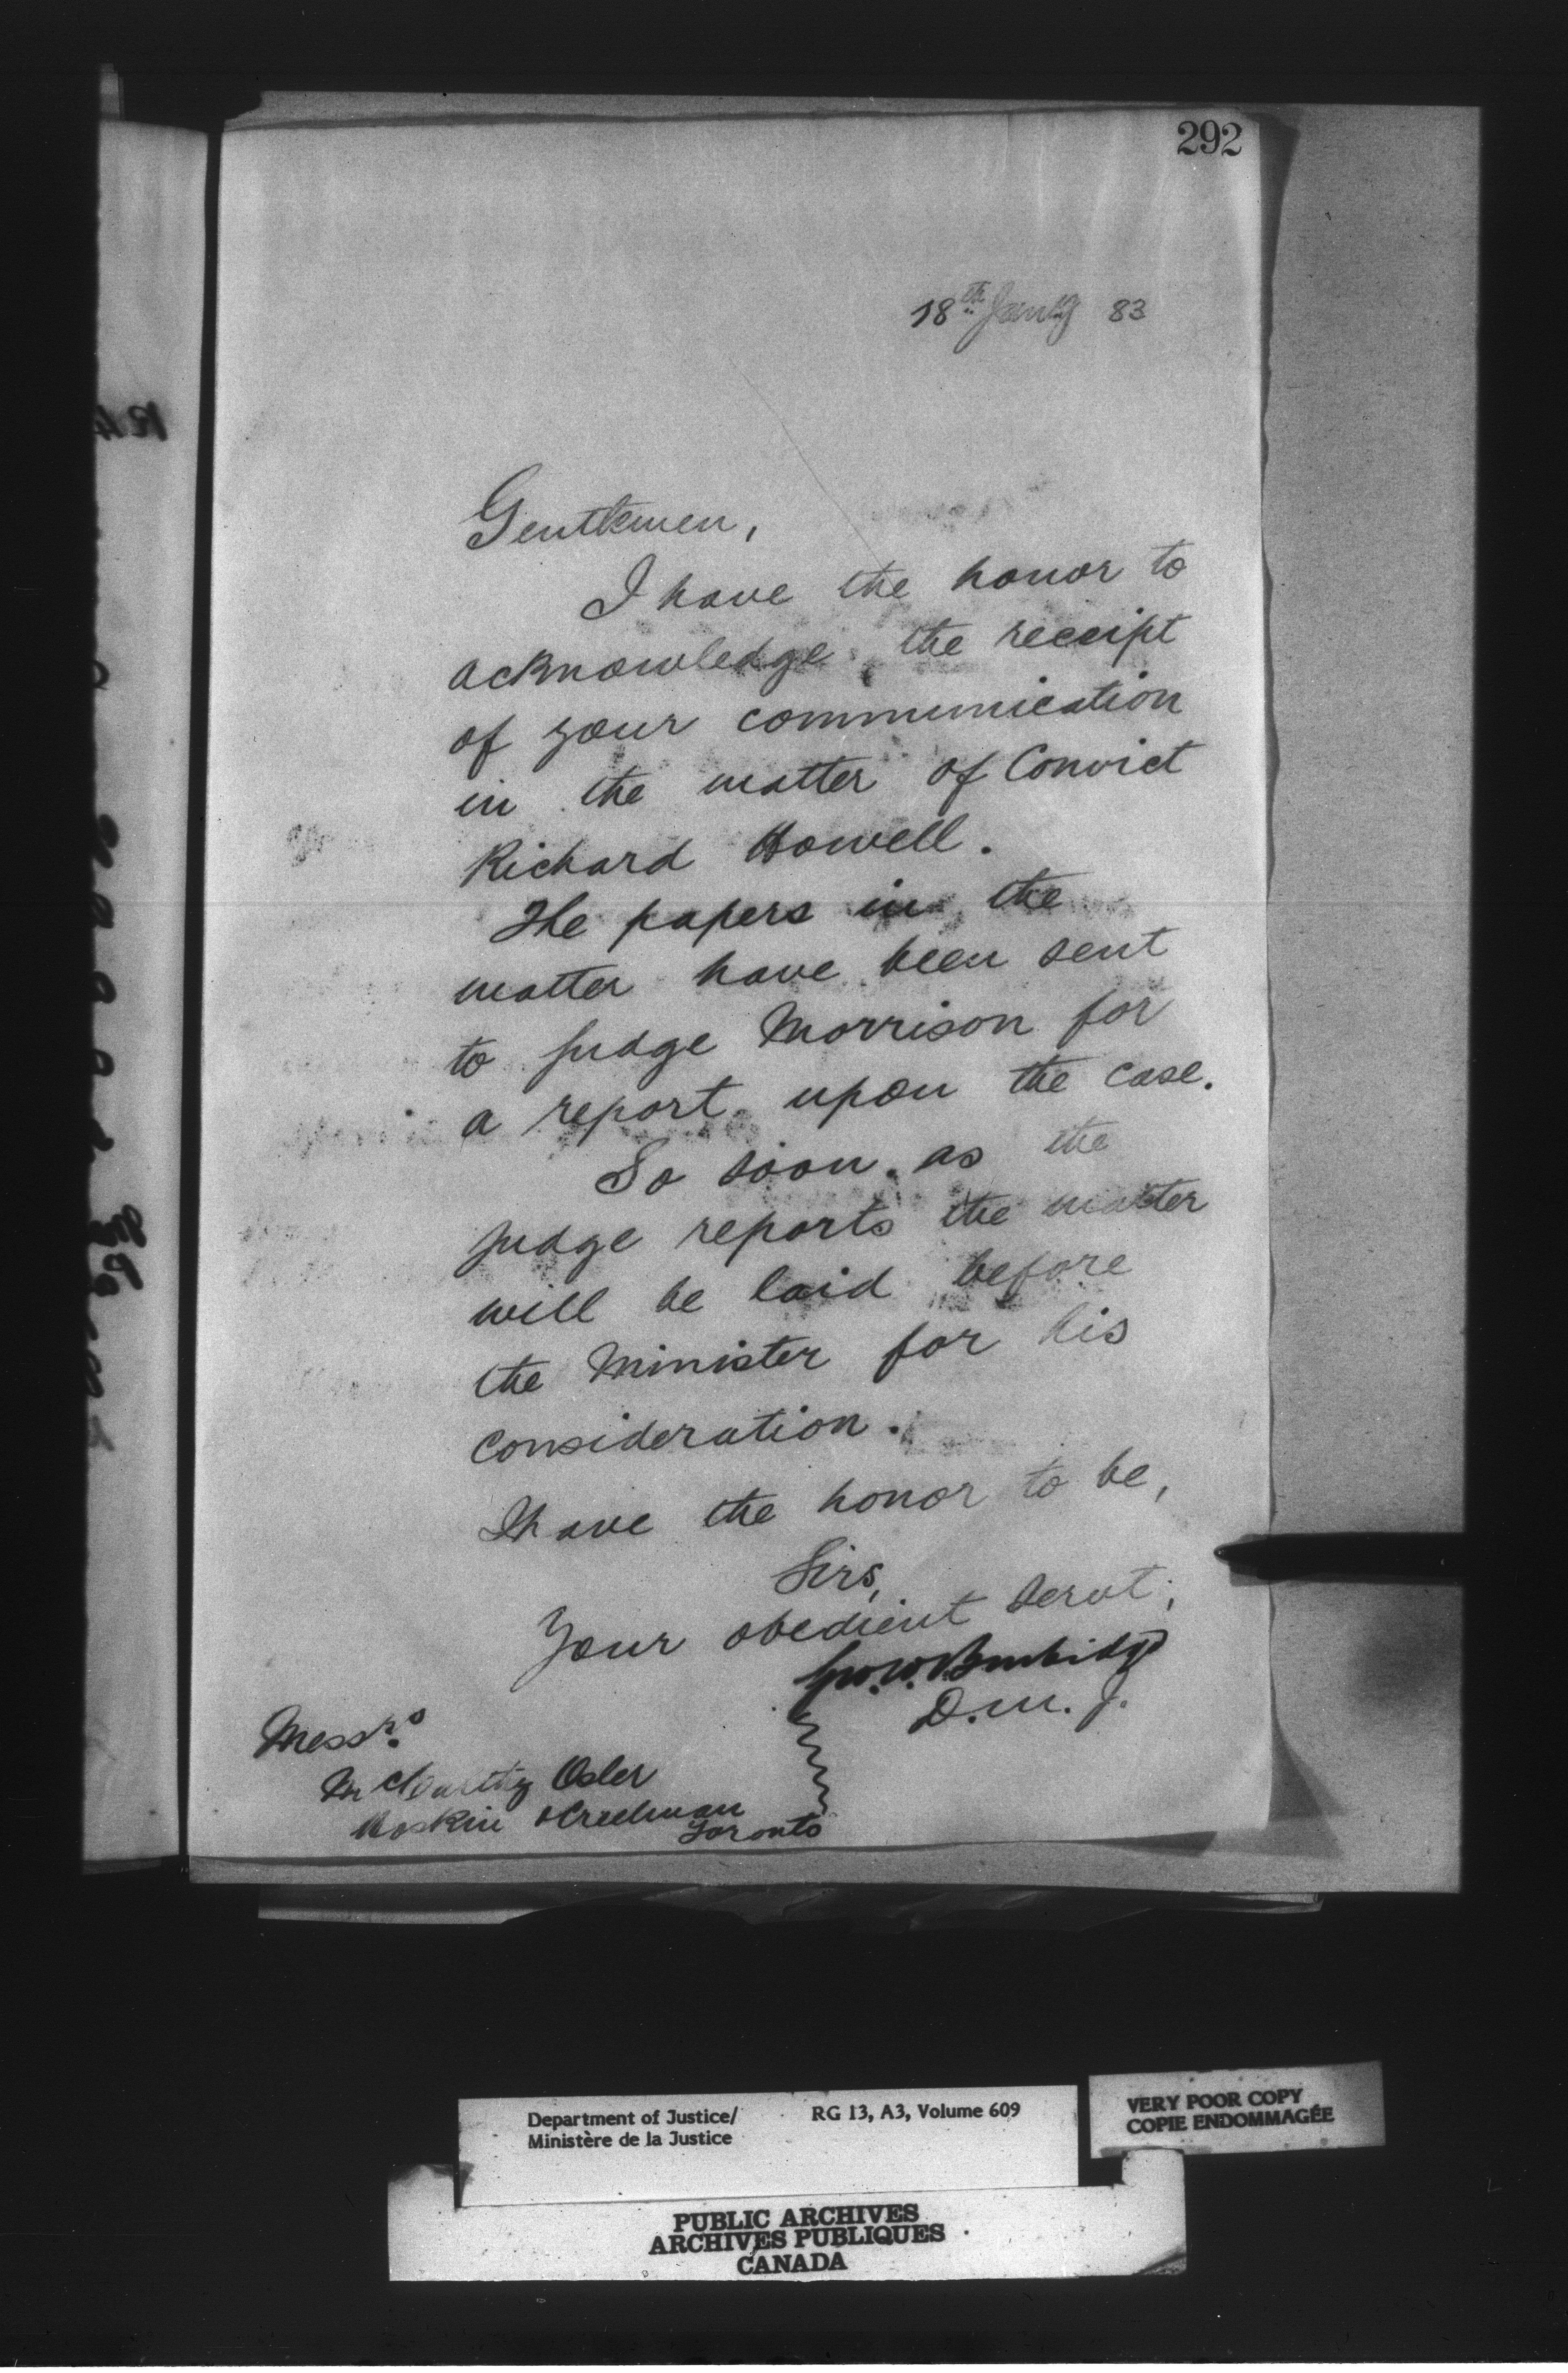 292
18th Jany 83
Gentlemen,
I have the honor to
acknowledge the receipt
of your communication
in the matter of Convict
Richard Howell.
The papers in the
matter have been sent
to Judge Morrison for
a report upon the case.
So soon as the
Judge reports the matter
will be laid before
the Minister for his
consideration.
I have the honor to be,
Sirs,
Your obedient servt,
Geo. W. Burbidge
D. M. J.
Messrs
McCarthy Osler
Hoskin & Creelman
Toronto
Department of Justice/ RG 13, A3, Volume 609
Ministère de la Justice
VERY POOR COPY
COPIE ENDOMMAGÉE
PUBLIC ARCHIVES
ARCHIVES PUBLIQUES
CANADA